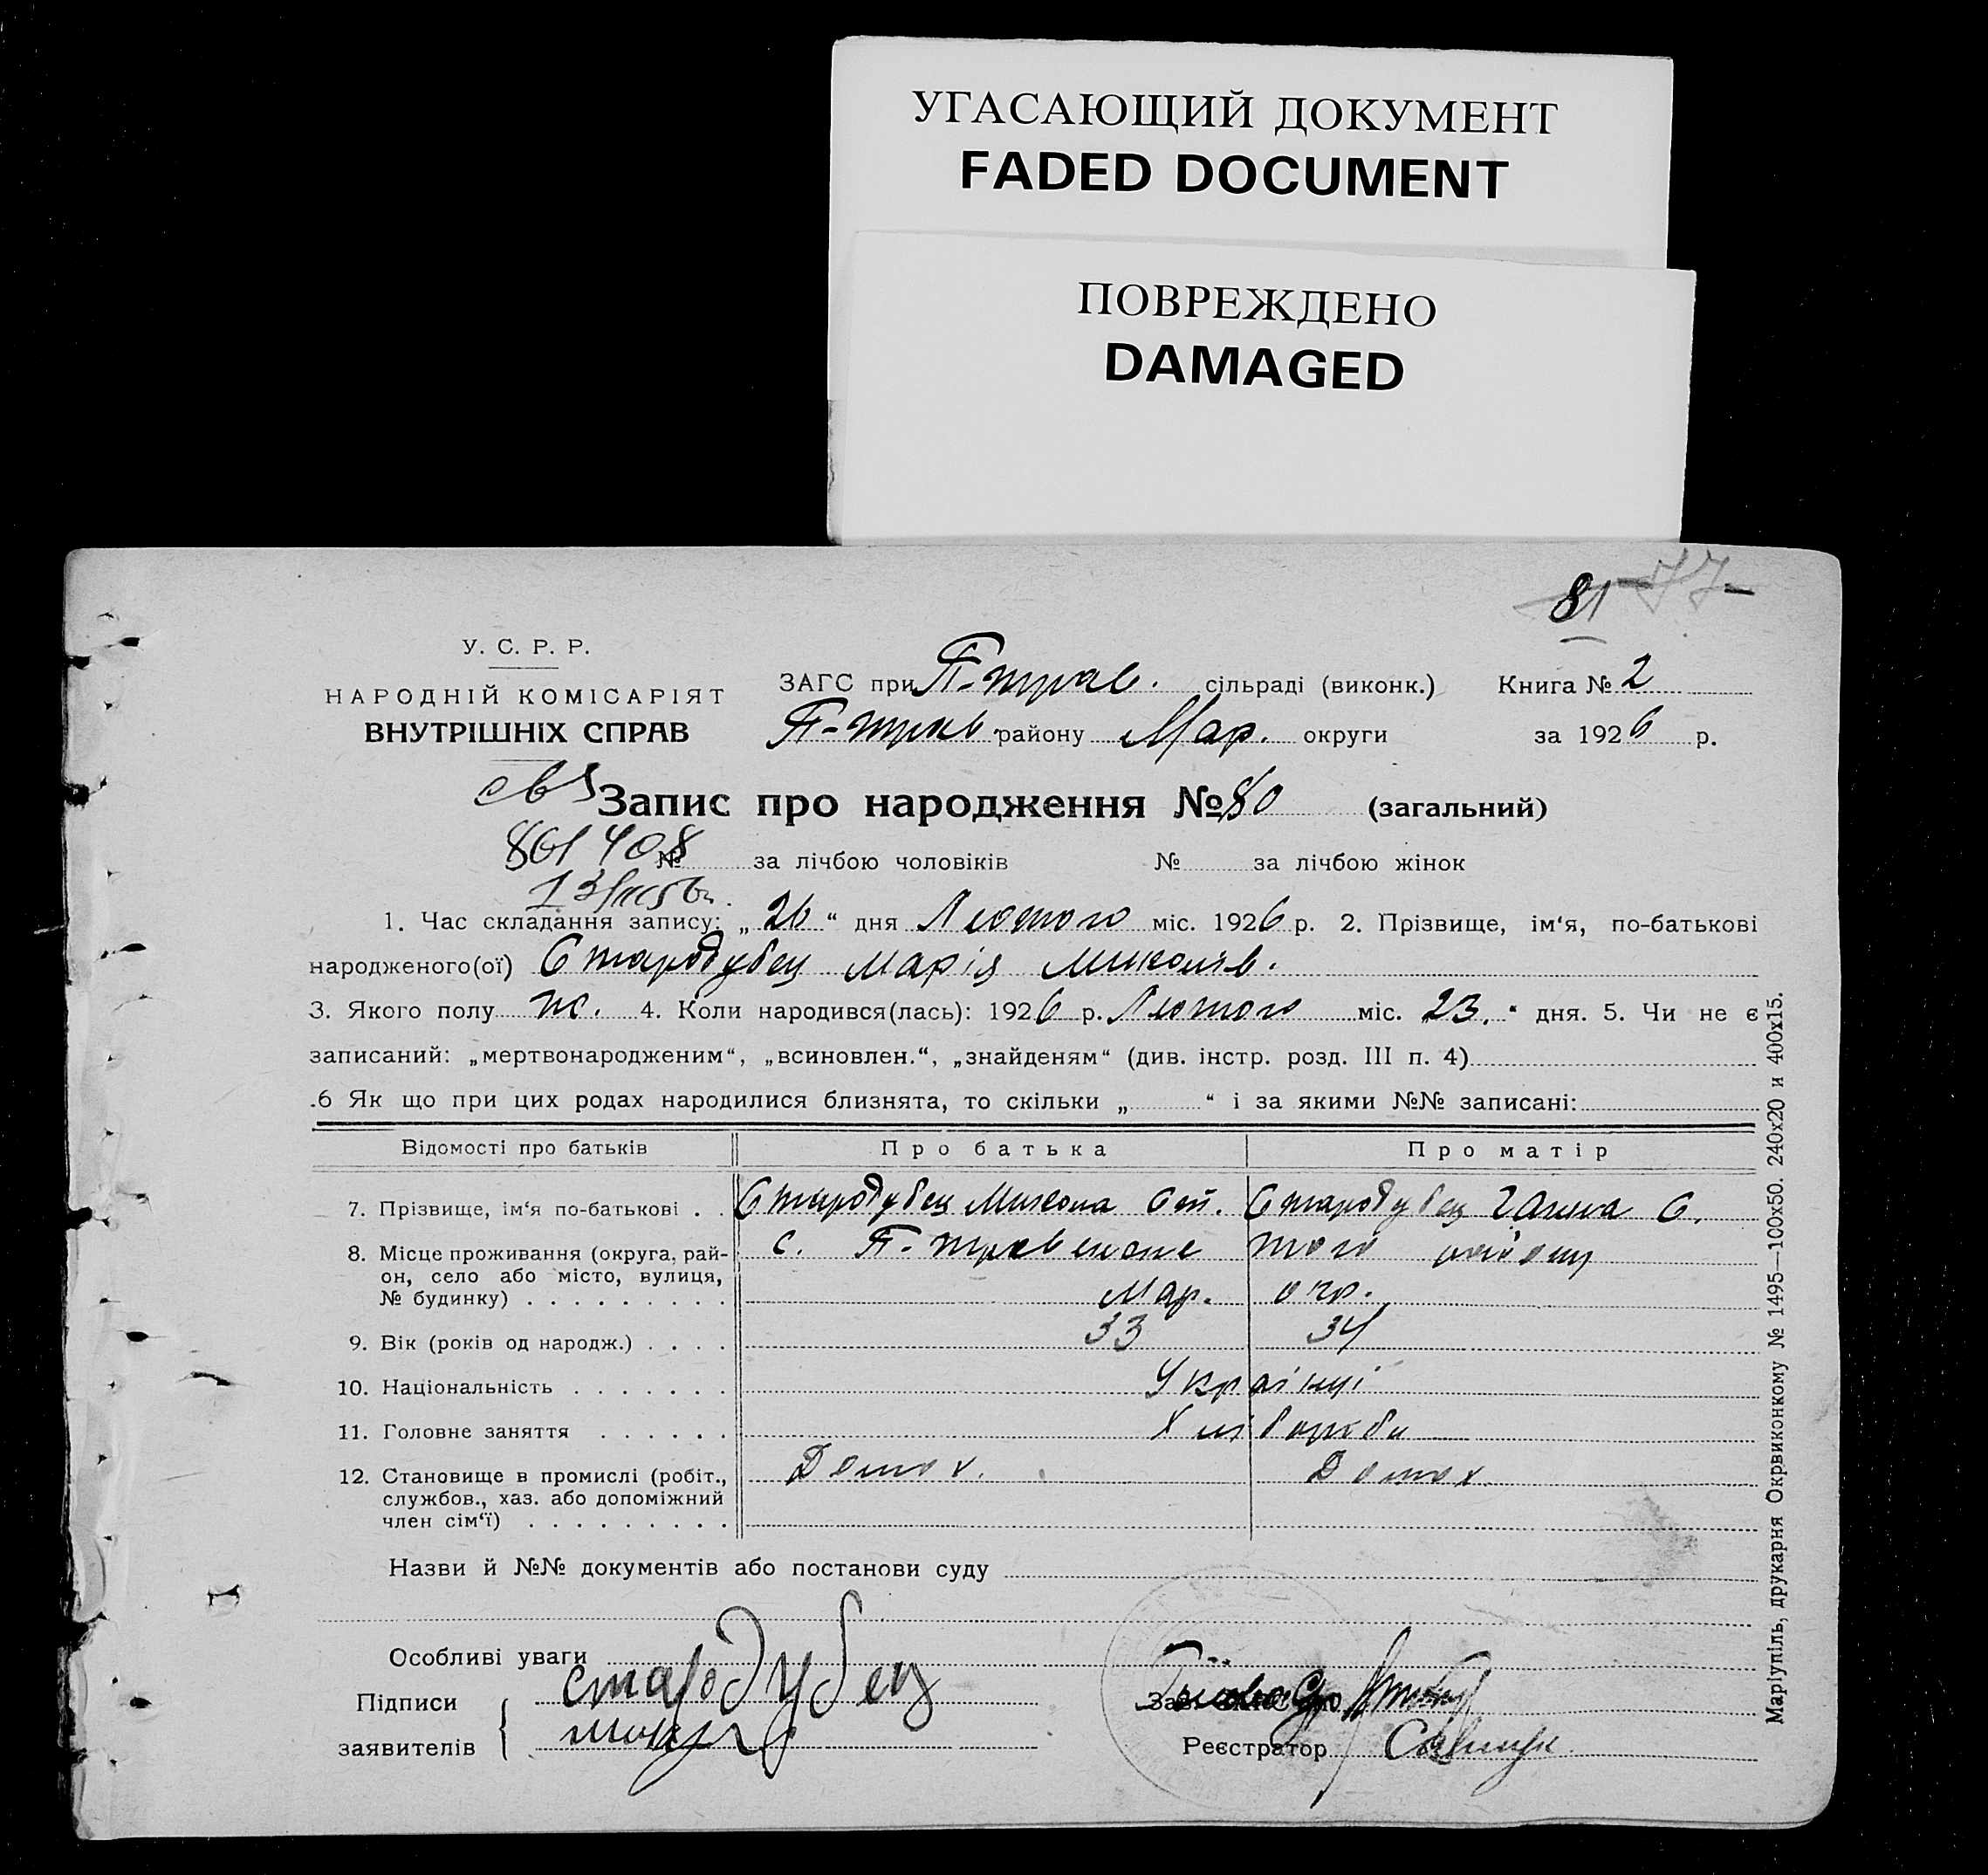 УГАСАЮЩИЙ ДОКУМЕНТ
FADED DOCUMENT
ПОВРЕЖДЕНО
DAMAGED
81 77
У. С. Р. Р.
НАРОДНІЙ КОМІСАРІЯТ
ВНУТРІШНІХ СПРАВ
ЗАГС при П-трав. сільраді (виконк.) Книга № 2
П-трав. району Мар. округи за 1926 р.
Запис про народження № 80 (загальний)
№ за лічбою чоловіків № за лічбою жінок
1. Час складання запису: „26“ дня Лютого міс. 1926 р. 2. Прізвище, ім‘я, по-батькові
народженого(ої) Стародубец Марія Миколів.
3. Якого полу ж. 4. Коли народився(лась): 1926 р. Лютого міс. 23. “ дня. 5. Чи не є
записаний: „мертвонародженим“, „всиновлен.“, „знайденям“ (див. інстр. розд. III п. 4)
.6 Як що при цих родах народилися близнята, то скільки „ “ і за якими №№ записані:
Відомості про батьків Про батька Про матір
7. Прізвище, ім‘я по-батькові . . Стародубец Микола Ст. Стародубец Ганна С.
8. Місце проживання (округа, рай-
он, село або місто, вулиця,
№ будинку) . . . . . . . . .
с. П- того району
Мар. окр.
9. Вік (років од народж.) . . . . 33 34
10. Національність . . . . . . . Українці
11. Головне заняття . . . . . . Хліборобы
12. Становище в промислі (робіт.,
службов., хаз. або допоміжний
член сім‘ї) . . . . . . . . .
Домох. Домох.
Назви й №№ документів або постанови суду
Особливі уваги
Підписи
заявителів
Стародубец
Реєстратор
Маріупіль, друкарня Окрвиконкому № 1495—100х50. 240х20 и 400х15.